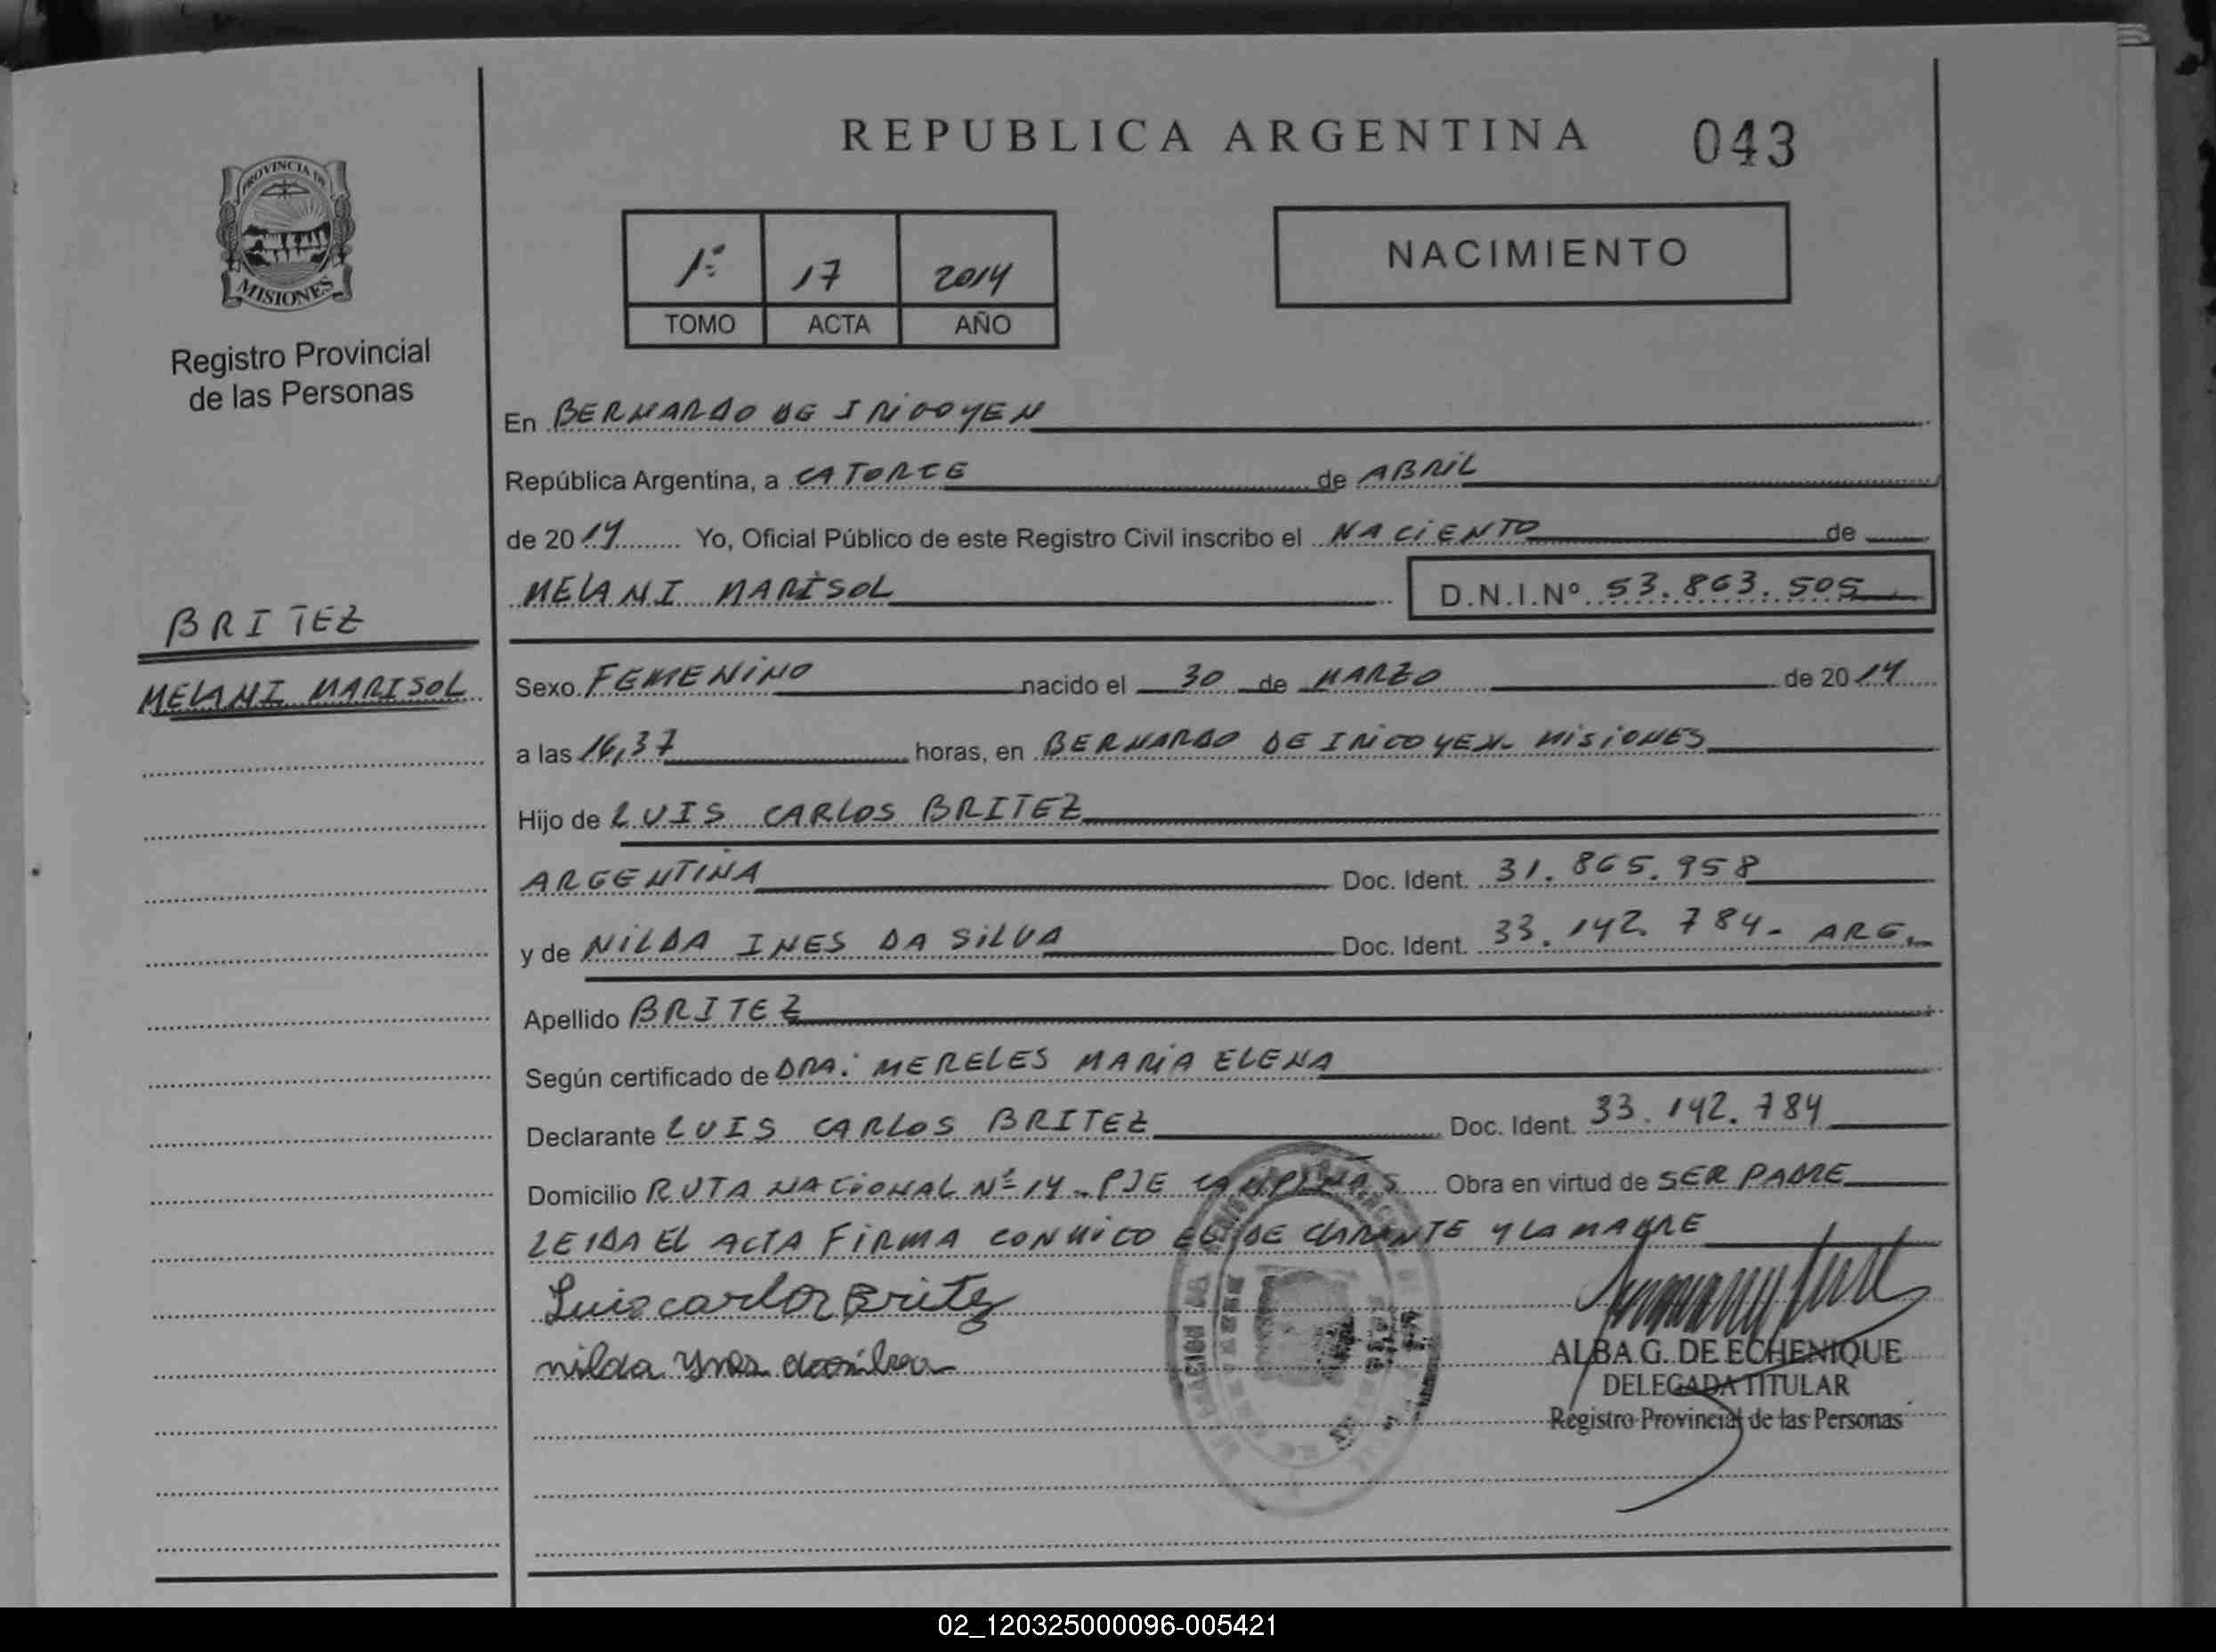 REPUBLICA ARGENTINA 043
PROVINCIA DE
MISIONES
Registro Provincial
de las Personas
1º 17 2014
TOMO ACTA AÑO
NACIMIENTO
En BERNARDO DE IRIGOYEN
República Argentina, a CATORCE de ABRIL
de 2014 Yo, Oficial Público de este Registro Civil inscribo el NACIENTO de
MELANI MARISOL D.N.I.Nº 53.863.505
BRITEZ
MELANI MARISOL
Sexo FEMENINO nacido el 30 de MARZO de 2014
a las 16,37 horas, en BERNARDO DE IRIGOYEN - MISIONES
Hijo de LUIS CARLOS BRITEZ
ARGENTINA Doc. Ident. 31.865.958
y de NILDA INES DA SILVA Doc. Ident. 33.142.784- ARG.
Apellido BRITEZ
Según certificado de DRA: MERELES MARIA ELENA
Declarante LUIS CARLOS BRITEZ Doc. Ident. 33.142.784
Domicilio RUTA NACIONAL Nº 14 - PJE CAMPIÑAS Obra en virtud de SER PADRE
LEIDA EL ACTA FIRMA CONMIGO EL DECLARANTE Y LA MADRE
Luis carlos Britez
nilda Ynes dasilva
ALBA G. DE ECHENIQUE
DELEGADA TITULAR
Registro Provincial de las Personas
02_120325000096-005421